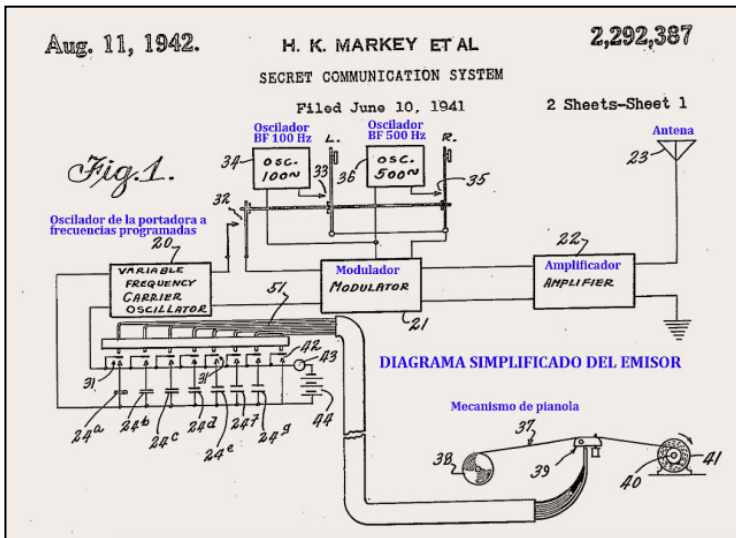 Aug. 11, 1942.
H. K. MARKEY ET AL
2,292,387
SECRET COMMUNICATION SYSTEM
Filed June 10, 1941
2 Sheets-Sheet 1
Fig.1.
Oscilador
BF 100 Hz
Oscilador
BF 500 Hz
Antena
34
OSC.
100~
33
L.
36
OSC.
500~
R.
35
23
32
Oscilador de la portadora a
frecuencias programadas
20
VARIABLE
FREQUENCY
CARRIER
OSCILLATOR
51
Modulador
MODULATOR
21
22
Amplificador
AMPLIFIER
31
31
42
43
44
24a
24b
24c
24d
24e
24f
24g
DIAGRAMA SIMPLIFICADO DEL EMISOR
Mecanismo de pianola
37
38
39
40
41